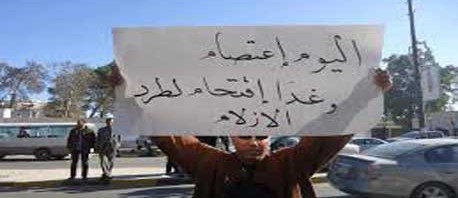 اليوم إعتصام
وغدا إقتحام لطرد
الازلام